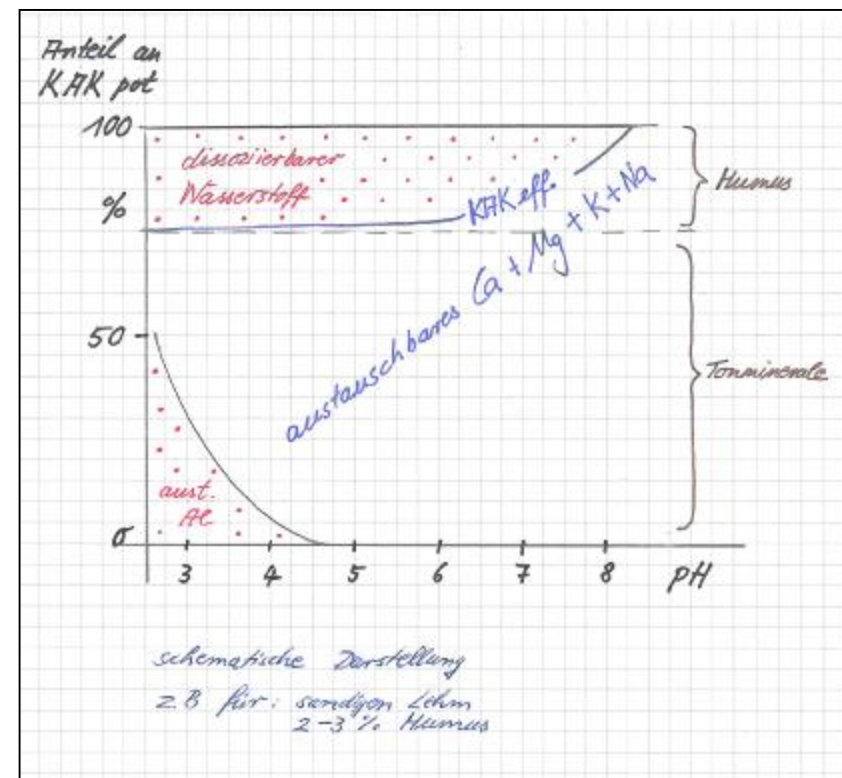 Anteil an
KAK pot
100
dissoziierbarer
Wasserstoff
%
KAK eff.
Humus
austauschbares Ca + Mg + K + Na
50
Tonminerale
aust.
Al
0
3 4 5 6 7 8 pH
schematische Darstellung
z B für: sandigen Lehm
2-3 % Humus